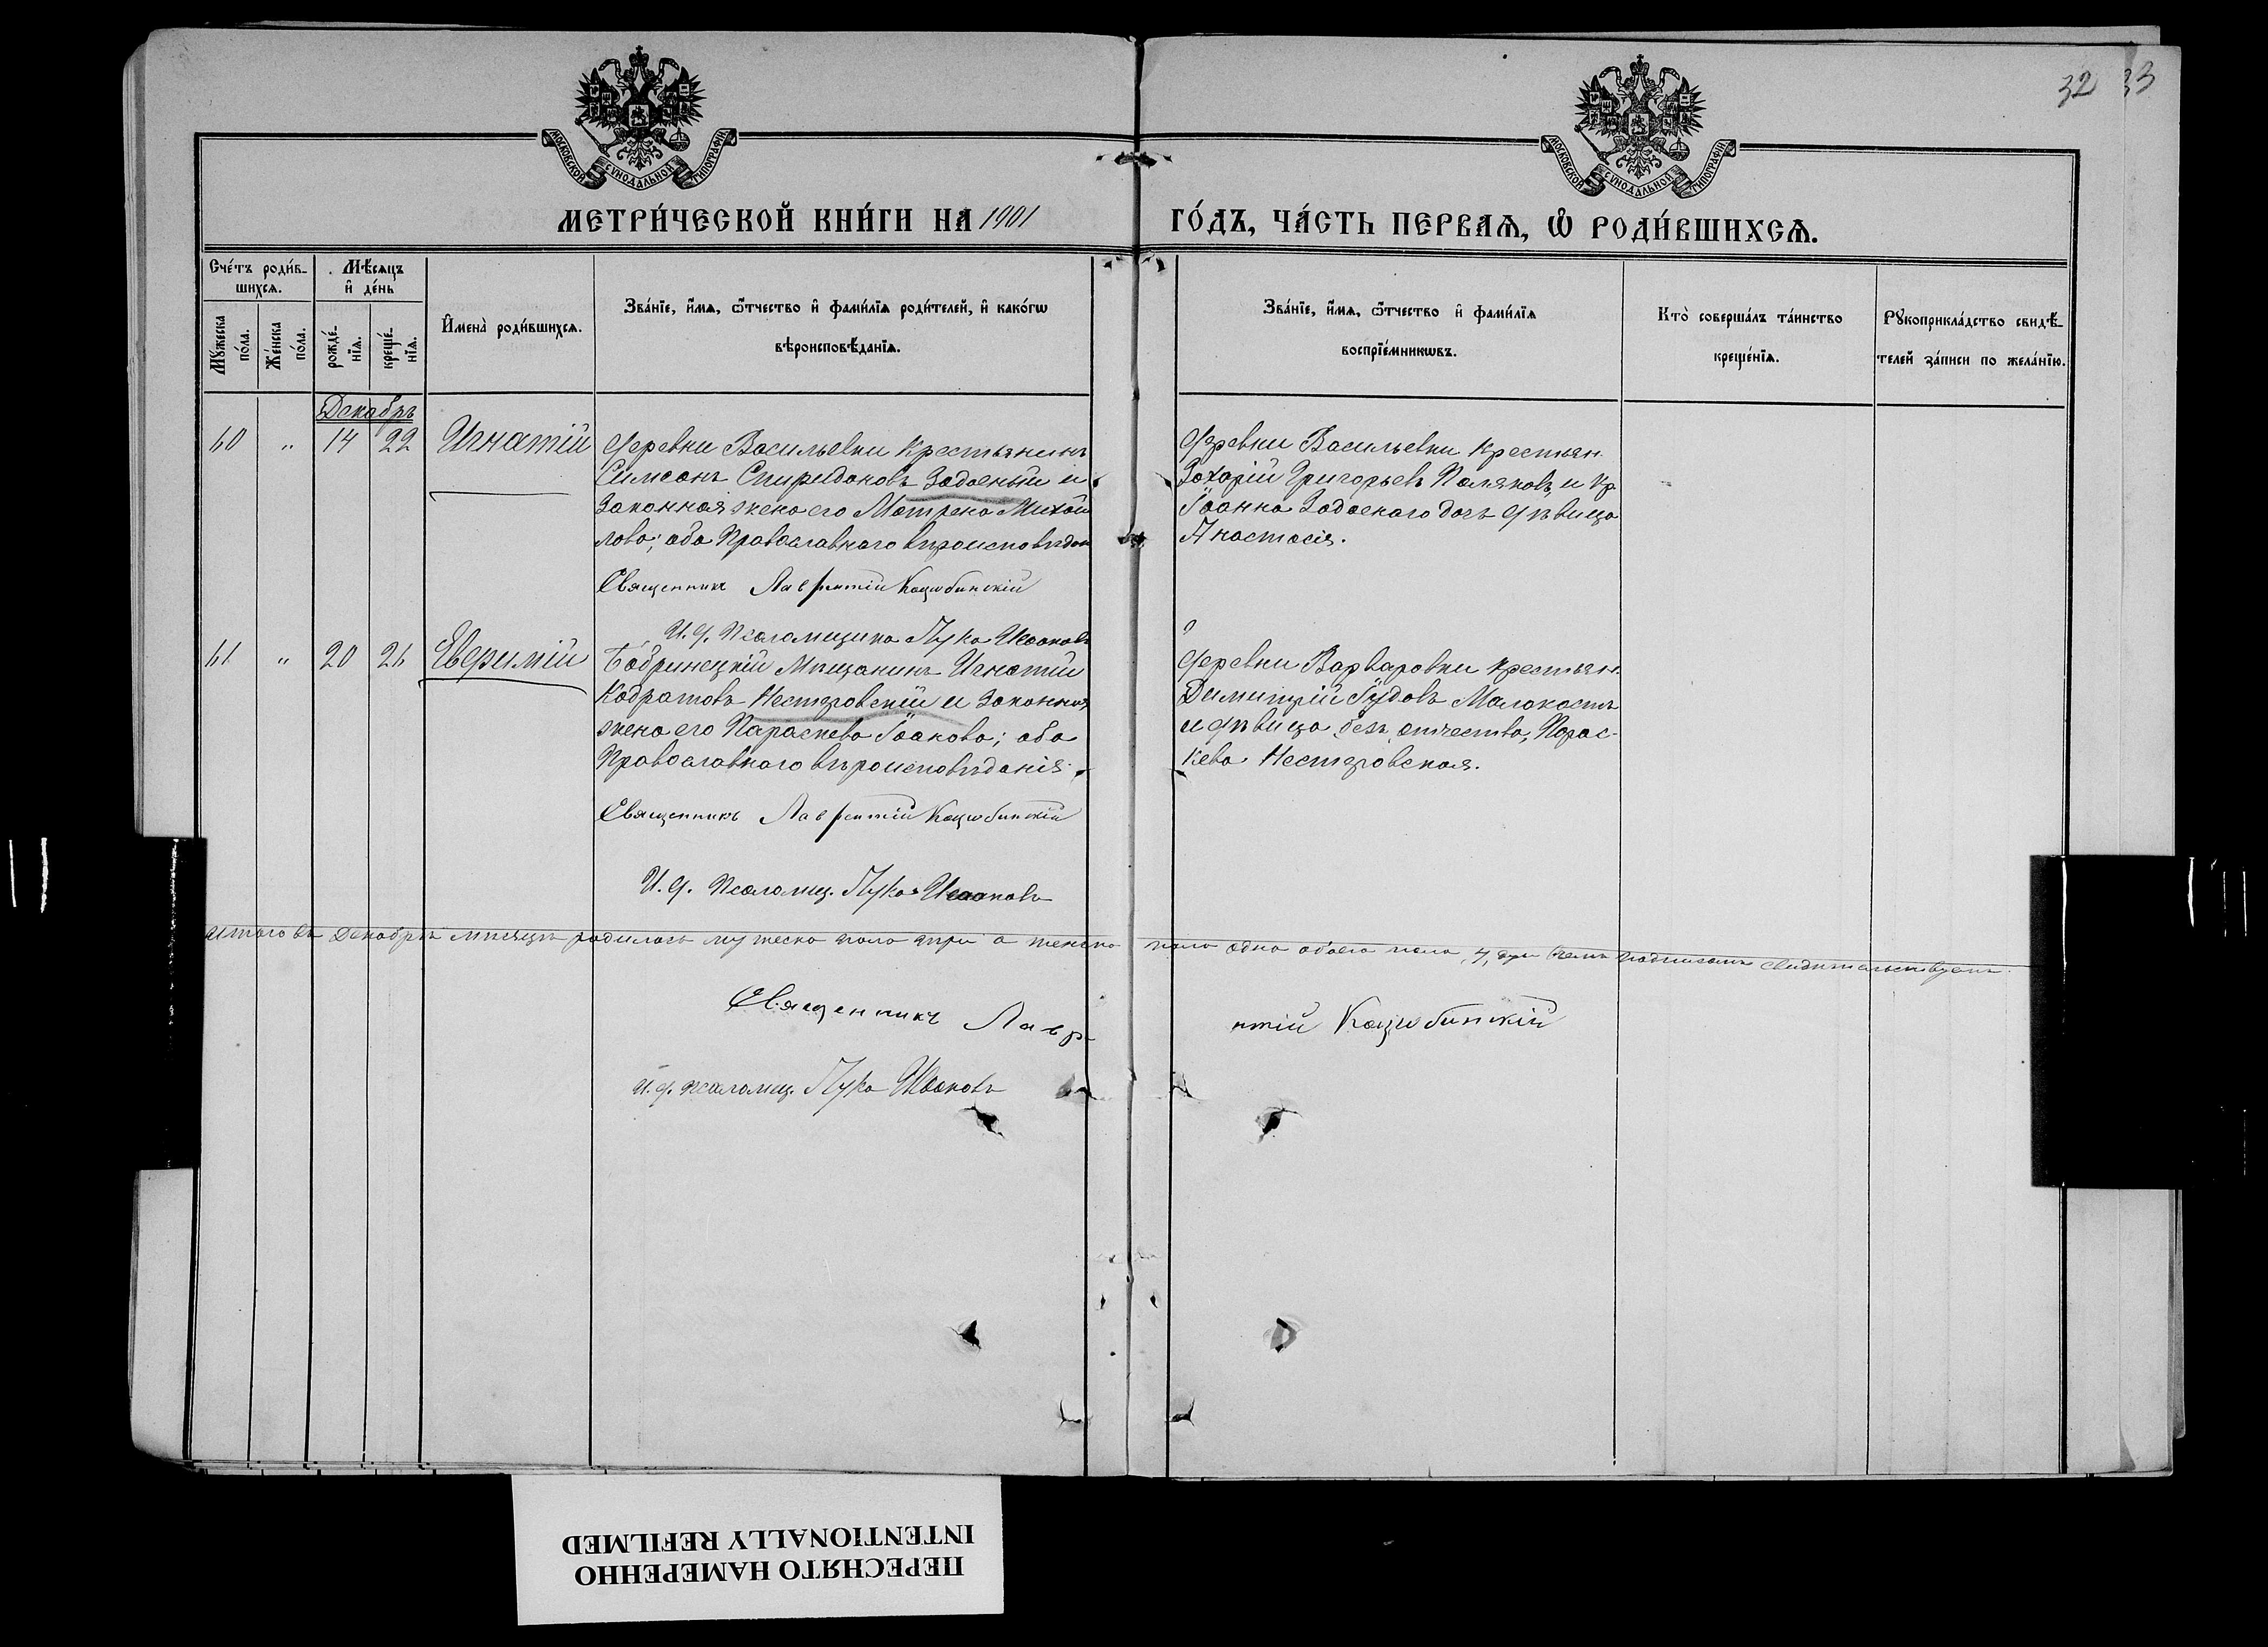 32 33
МОСКОВСКОЙ СѴНОДАЛЬНОЙ ТИПОГРАФІИ
МОСКОВСКОЙ СѴНОДАЛЬНОЙ ТИПОГРАФІИ
МЕТРИ́ЧЕСКОЙ КНИ́ГИ НА 1901 ГО́ДЪ, ЧА́СТЬ ПЕРВАѦ, Ѽ РОДИ́ВШИХСѦ.
Сче́тъ роди́в-
шихсѧ.
Мѣ́сяцъ
и҆ де́нь
Мꙋжеска
по́ла.
Же́нска
по́ла.
рожде́-
нїѧ.
креще́-
нїѧ.
И҆мена̀ роди́вшихсѧ.
Зва́нїе, и҆́мѧ, ѻ҆́тчество и҆ фами́лїѧ роди́телей, и҆ како́гѡ
вѣроисповѣ́данїѧ.
Зва́нїе, и҆́мѧ, ѻ҆́тчество и҆ фами́лїѧ
воспрїе́мникѡвъ.
Кто̀ соверша́лъ та́инство
креще́нїѧ.
Рꙋкоприкла́дство свидѣ́-
телей за́писи по жела́нїю.
Декабрь
60 " 14 22 Игнатій
деревни Васильевки крестьянинъ
Симеонъ Спиридоновъ Задаеный и
законная жена его Матрена Михаи
лова; оба Православнаго вѣроисповѣдан
Священникъ Лаврентій Коцюбинскій
И. д. Псаломщика Лука Ивановъ
деревни Васильевки крестьян.
Захарій Григорьевъ Поляковъ, и кр
Іоанна Задоенаго дочь дѣвица
Анастасія.
61 " 20 26 Евѳимій
Бобринецкій Мѣщанинъ Игнатій
Кодратовъ Нестеровскій и законная
жена его Параскева Іоакова; оба
Православнаго вѣроисповѣданія.
Священникъ Лаврентій Коцюбинскій
И. д. Псаломщ. Лука Ивановъ
деревни Варваровки крестьян.
Димитрій Іудовъ Малокостъ
и дѣвица, безъ отчества, Парас-
кева Нестеровская.
Итого въ Декабрѣ мѣсяцѣ родилось мужеска пола три а женска пола одна обоего пола, 4, въ чемъ подписомъ свидѣтельствуемъ.
Священникъ Лаврентій Коцюбинскій
И. д. псаломщ. Лука Ивановъ
ПЕРЕСНЯТО НАМЕРЕННО
INTENTIONALLY REFILMED